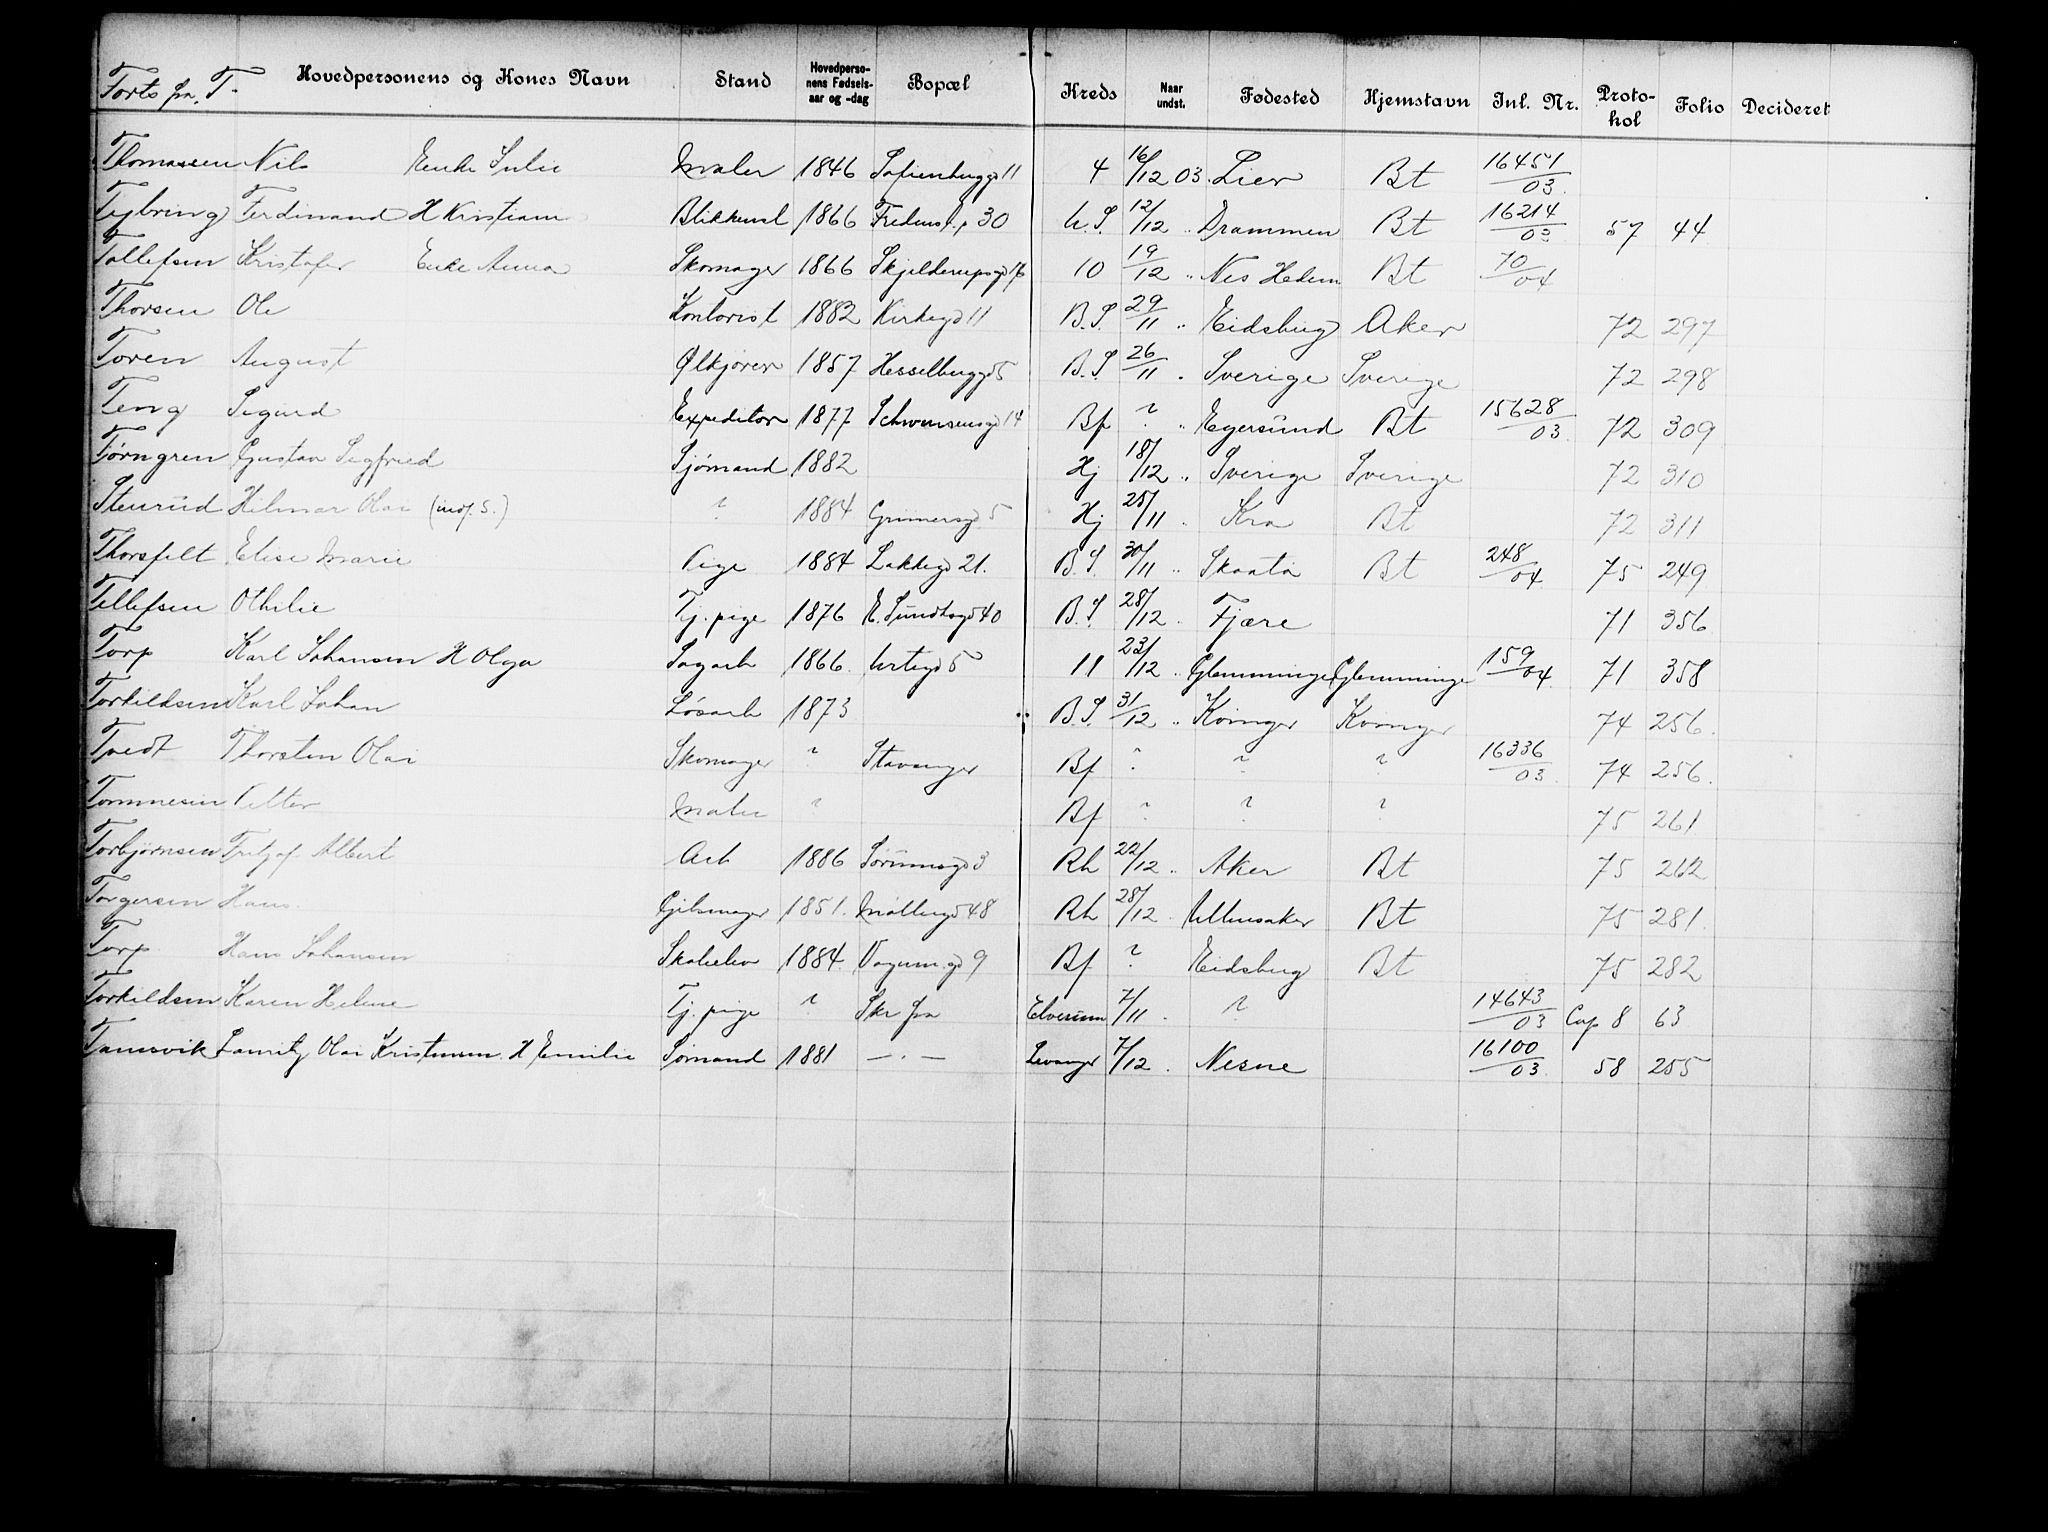 Forts fra T. Hovedpersonens og Kones Navn Stand Hovedpersonens Fødselsaar og -dag Bopæl Kreds Naar undst. Fødested Hjemstavn Inl. Nr. Protokol Folio Decideret
Thomassen Nils Enke Julie Maler 1846 Sofienbergg 11 4 16/12 03. Lier Bt 16451/03.
Tybring Ferdinand H Kristiane Blikkensl 1866 30 U. S. 12/12 " Drammen Bt 16214/03 57 44
Tollefsen Kristofer Enke Anna Skomager 1866 Skjelderupsgd 16 10 19/12 " Nes Hedem Bt 70/04
Thorsen Ole Kontorist 1882 Kirkegd 11 B. S. 29/11 " Eidsberg Aker 72 297
Toren August Ølkjører 1857 Hesselbergg 5 B. S 26/11 " Sverige Sverige 72 298
Teng Sigurd Expeditør 1877 Schwensensgd 14 Bf ? " Egersund Bt 15628/03. 72 309
Törngren Gustav Sigfried Sjømand 1882 Hj 18/12 " Sverige Sverige 72 310
Stenrud Hilmar Olai (indf. S.) ? 1884 Grünersgd 5 Hj 25/11 " Kra Bt 72 311
Thorsfelt Elise Marie Pige 1884 Lakkegd 21. B. S. 30/11 " Skaatø Bt 248/04 75 249
Tellefsen Othilie Tj. pige 1876 E. Sundtsgd 40 B. S 28/12 . Fjære 71 356
Torp Karl Johansen H Olga Sagarb 1866. Urtegd 5 11 23/12 " Glemminge Glemminge 159/04. 71 358
Torkildsen Karl Johan Løsarb 1873 B. S. 31/12 " Kvinger Kvinger 74 256.
Tvedt Thorsten Olai Skomager ? Stavanger Bf ? ? ? 16336/03 74 256.
Tommesen Petter Maler ? Bf ? ? ? 75 261
Torbjørnsen Fritjof Albert Arb 1886 Sørumsgd 3 Rh 22/12 " Aker Bt 75 262
Torgersen Hans. Gjelsmager 1851. Møllergd 48 Rh 28/12 . Ullensaker Bt 75 281.
Torp Hans Johansen Skoelev 1884. 9 Bf ? Eidsberg Bt 75 282
Torkildsen Karen Helene Tj. pige ? Skr fra Elverum 7/11 . ? 14643/03 Cop 8 63
Tamsvik Lauritz Olai Kristensen. H Emilie Sømand 1881 — . — Levanger 7/12 . Nesne 16100/03. 58 255